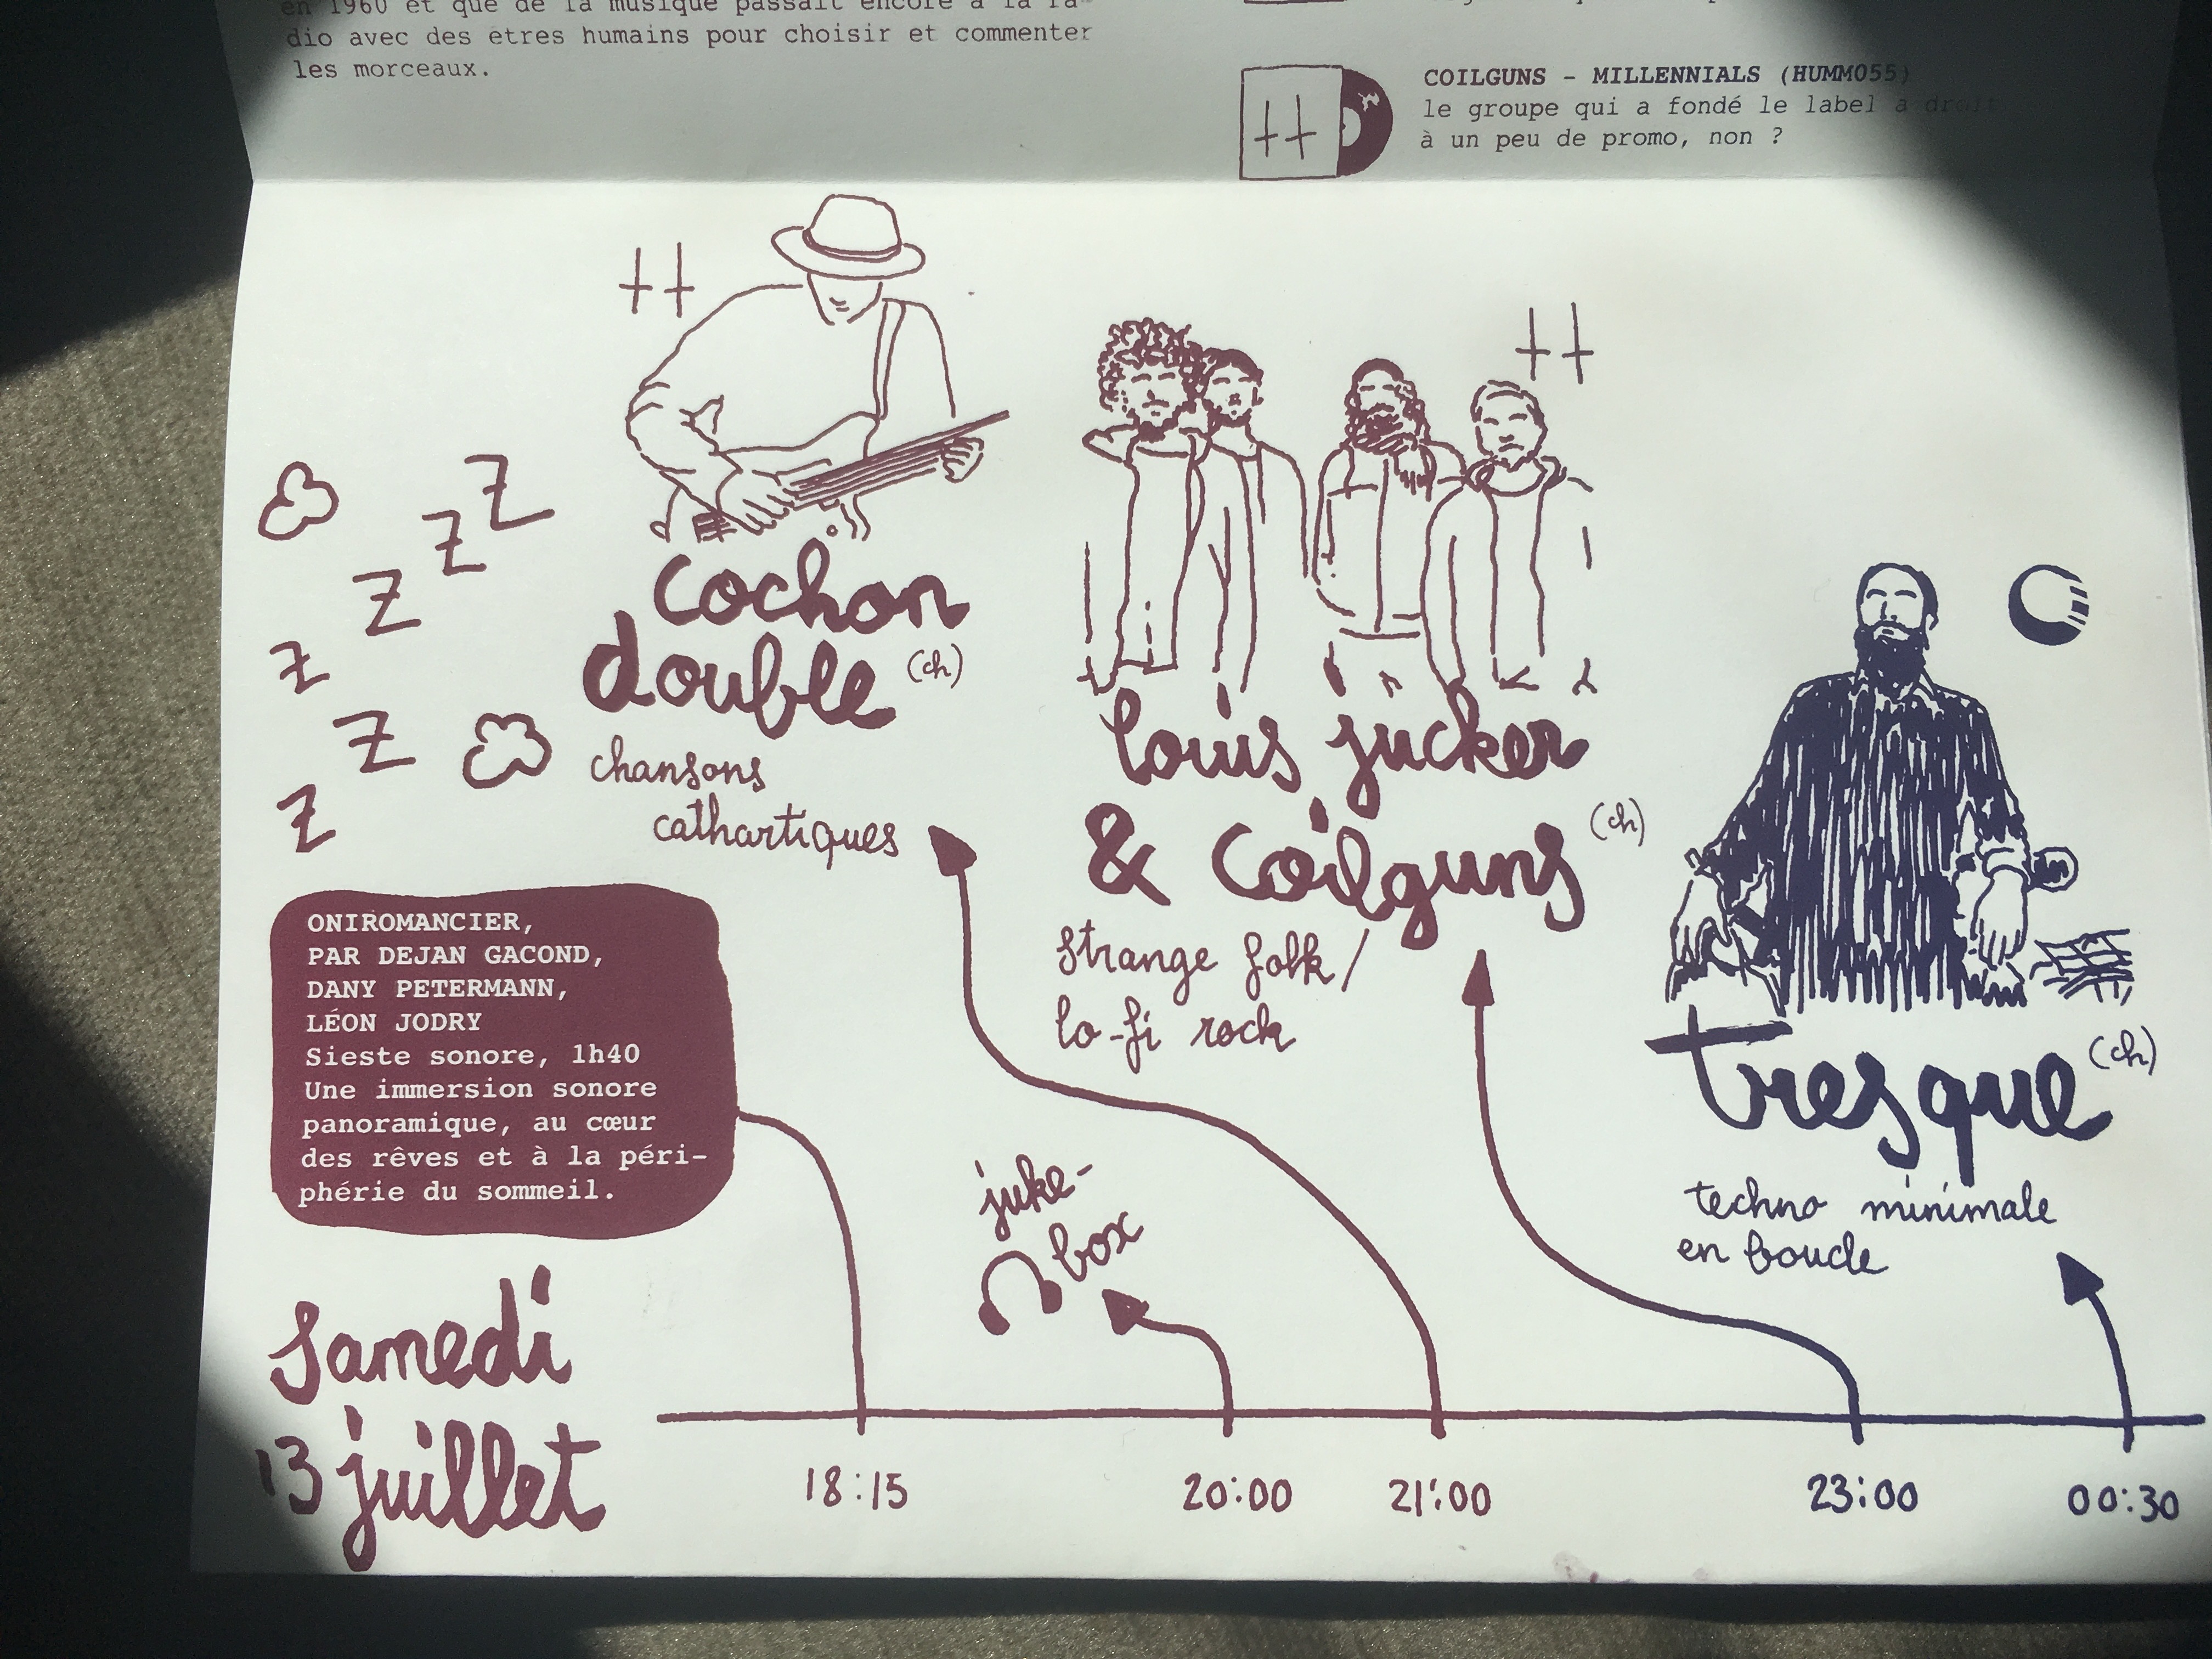 en 1960 et que de la musique passait encore à la ra-
dio avec des etres humains pour choisir et commenter
les morceaux.
COILGUNS - MILLENNIALS (HUMM055)
le groupe qui a fondé le label a droit
à un peu de promo, non ?
Z
Z
Z
Z
Z
Z
cochon
double (ch)
chansons
cathartiques
louis jucker
& coilguns (ch)
strange folk/
lo-fi rock
tresque (ch)
techno minimale
en boucle
ONIROMANCIER,
PAR DEJAN GACOND,
DANY PETERMANN,
LÉON JODRY
Sieste sonore, 1h40
Une immersion sonore
panoramique, au cœur
des rêves et à la péri-
phérie du sommeil.
juke-
box
samedi
13 juillet
18:15
20:00
21:00
23:00
00:30